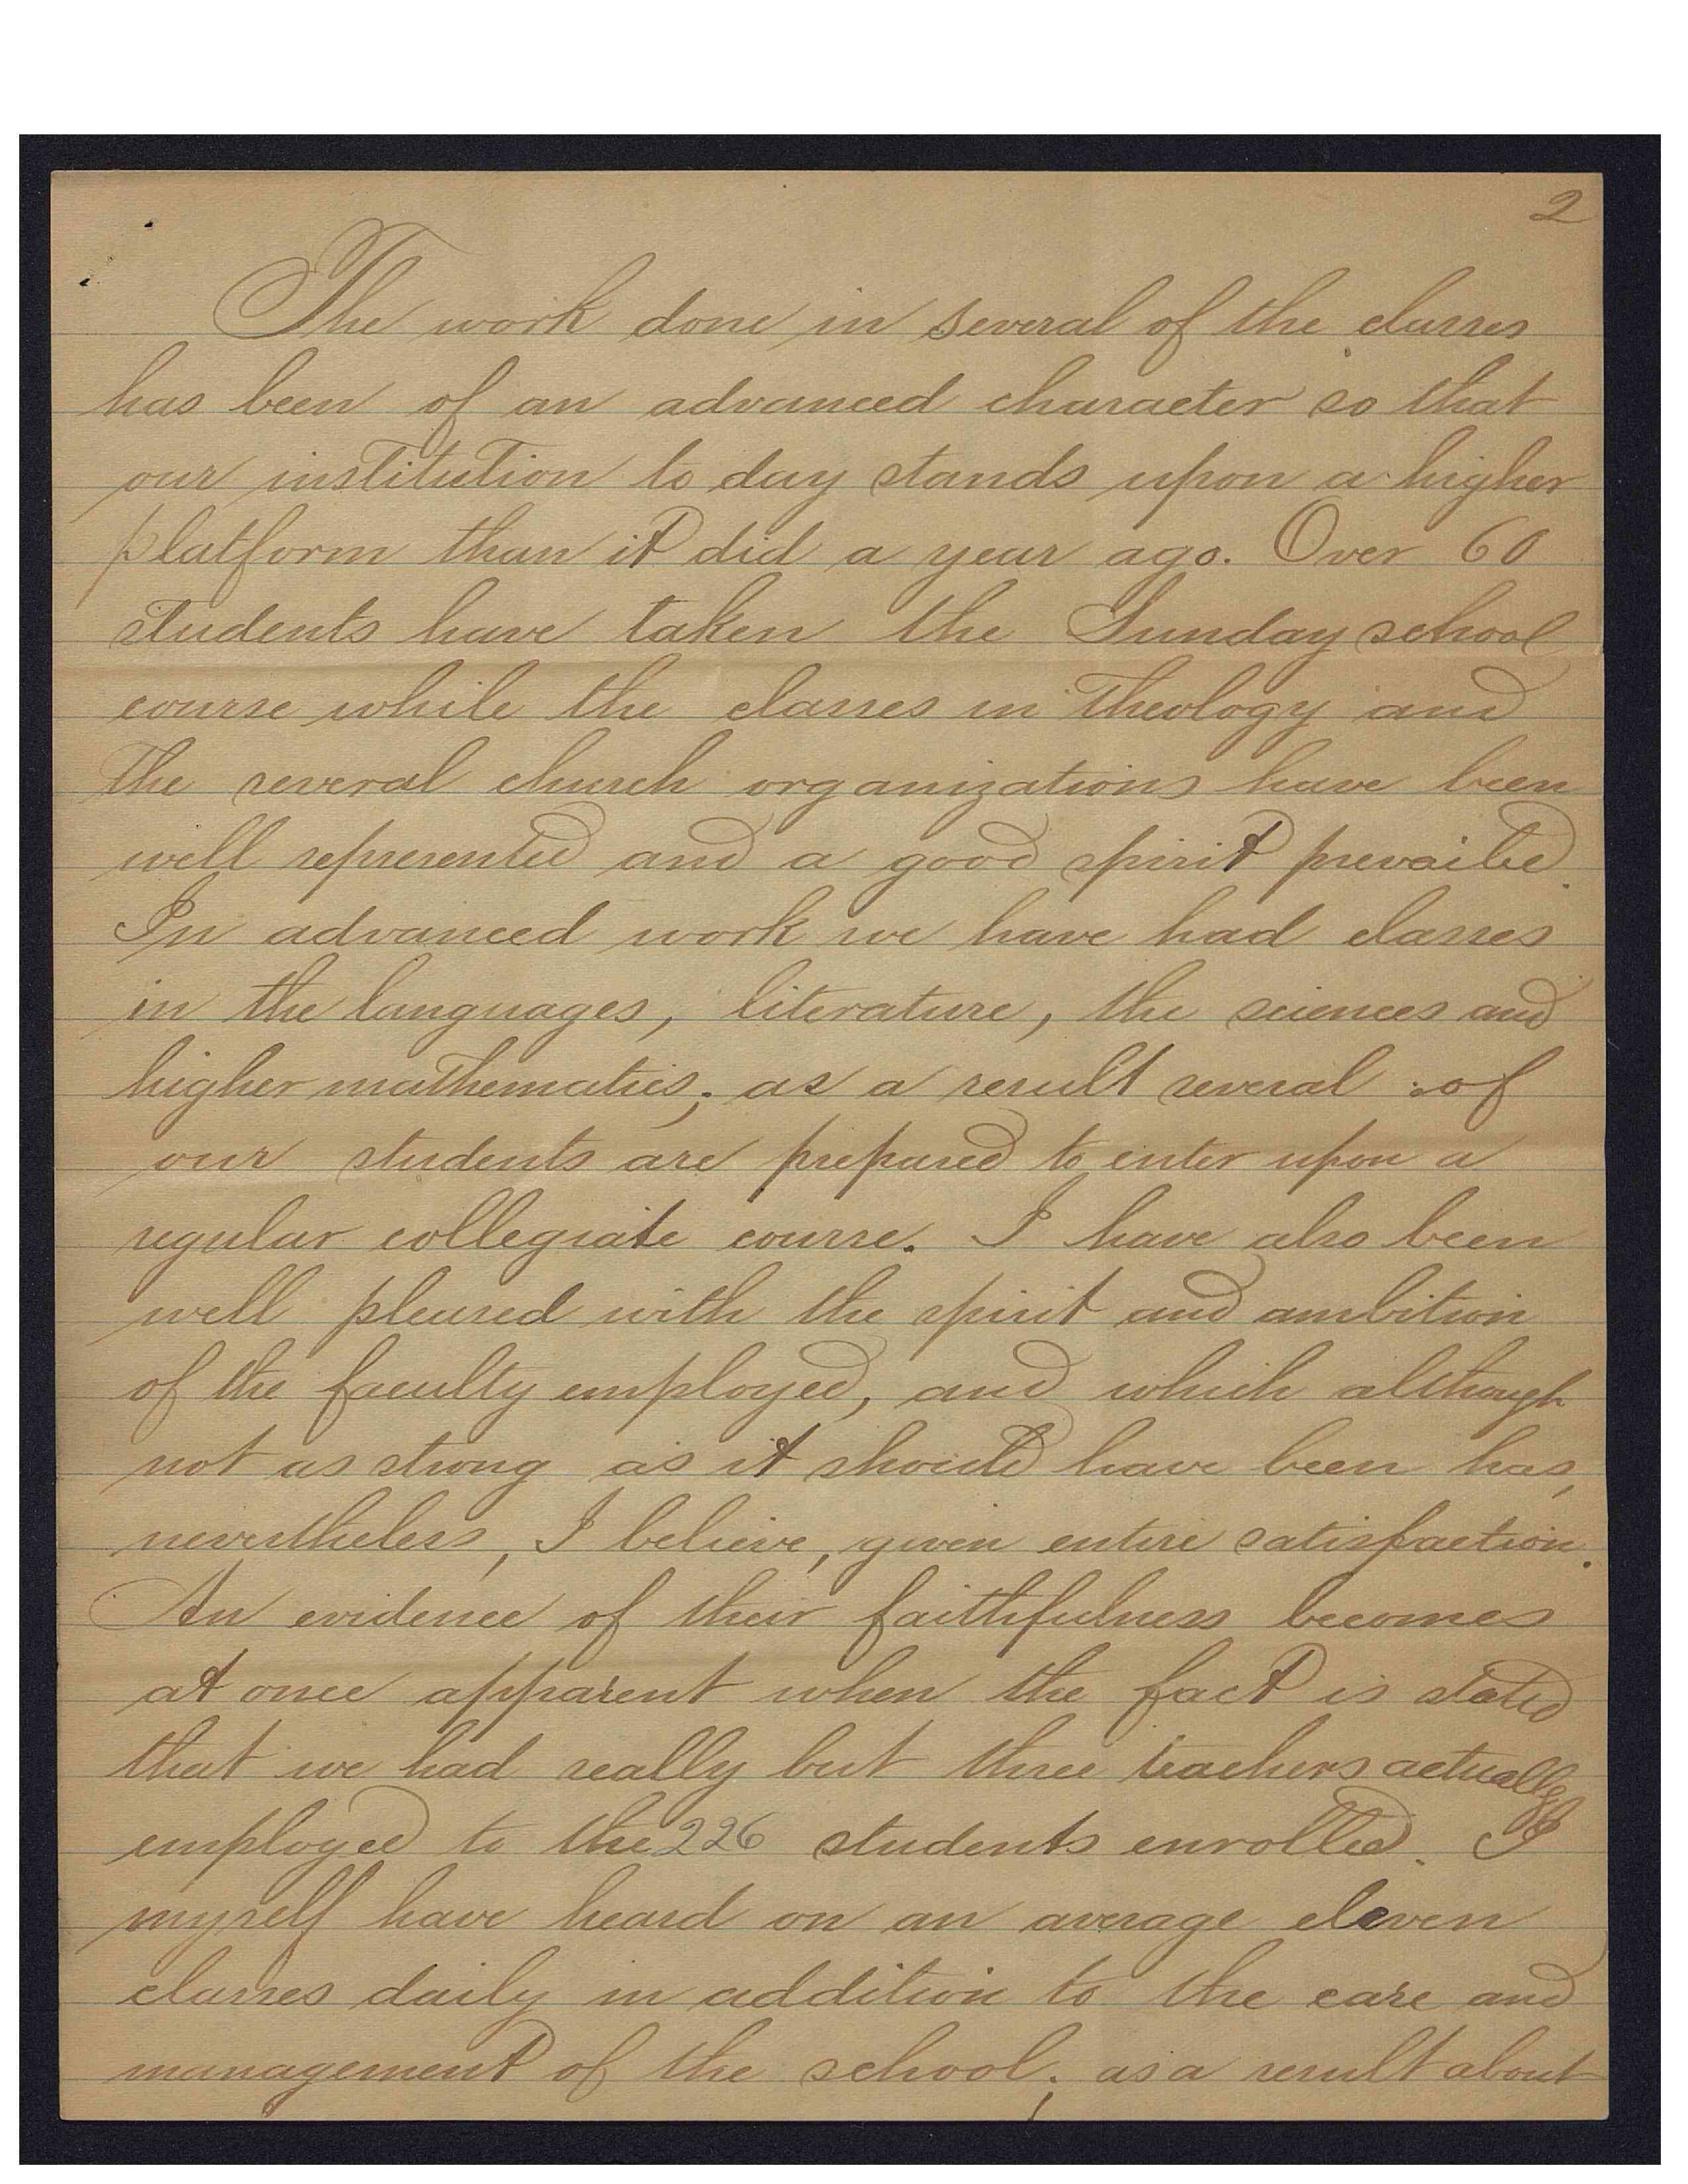 2
The work done in several of the classes
has been of an advanced character so that
our institution to day stands upon a higher
platform than it did a year ago. Over 60
students have taken the Sunday school
course while the classes in Theology and
the several church organizations have been
well represented and a good spirit prevailed.
In advanced work we have had classes
in the languages, literature, the sciences and
higher mathematics; as a result several of
our students are prepared to enter upon a
regular collegiate course. I have also been
well pleased with the spirit and ambition
of the faculty employed, and which although
not as strong as it should have been has,
nevertheless, I believe, given entire satisfaction.
An evidence of their faithfulness becomes
at once apparent when the fact is stated
that we had really but three teachers actually
employed to the 226 students enrolled. I
myself have heard on an average eleven
classes daily in addition to the care and
management of the school; as a result about